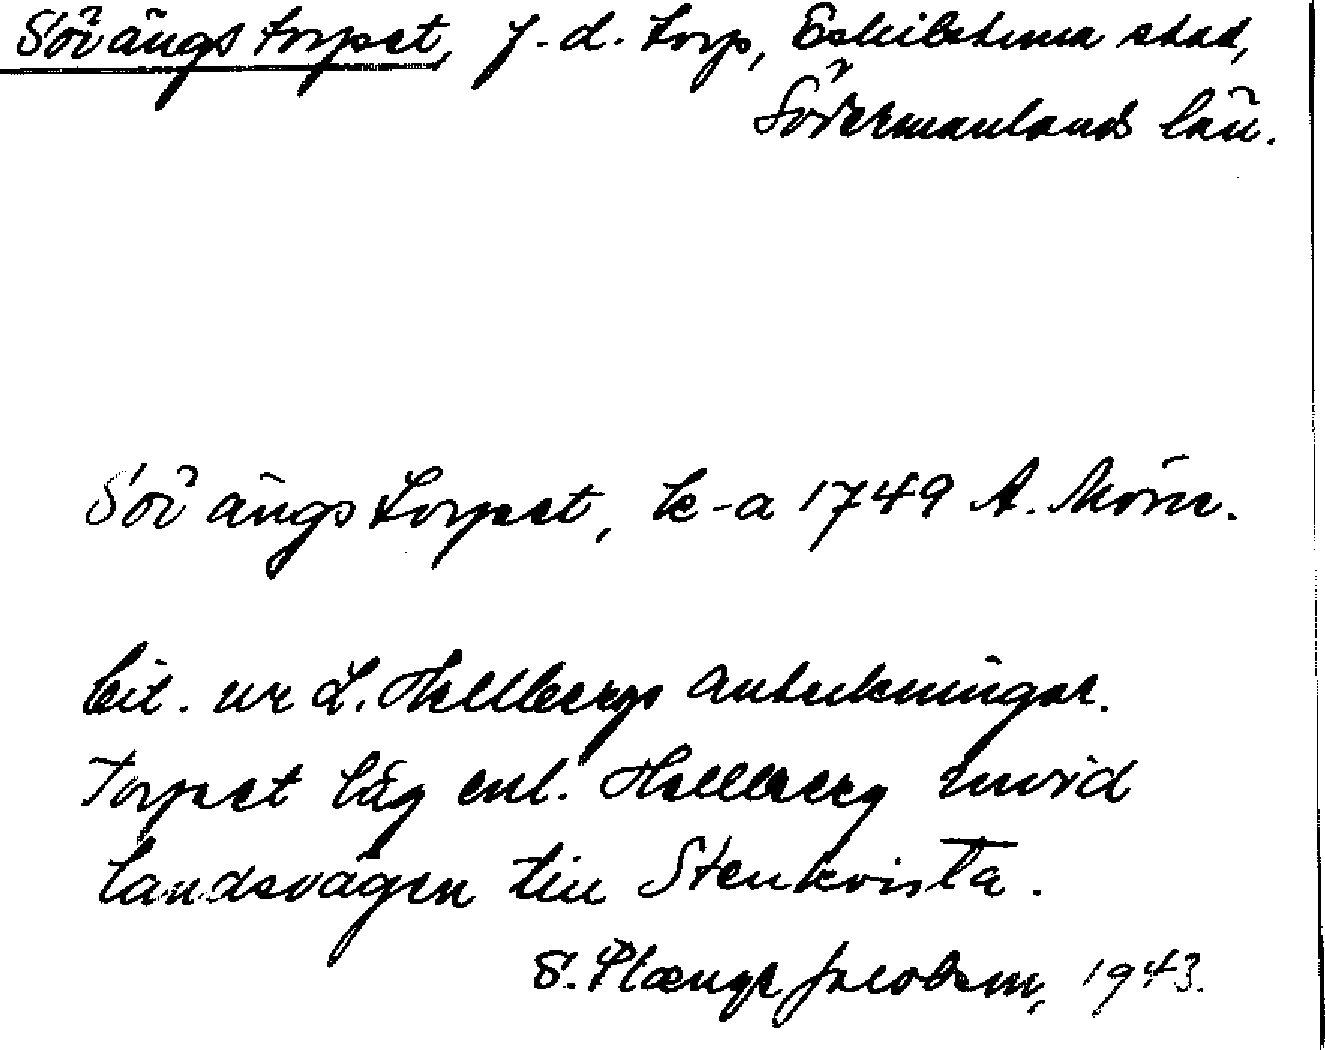 Sövängstorpet, f.d. torp, Eskilstuna stad,
Södermanlands län.
Sövängstorpet, k-a 1749 A. Mörn.
Cit. ur L. Hellbergs anteckningar.
Torpet låg enl. Hellberg invid
landsvägen till Stenkvista.
S. Plænge Jacobson, 1943.